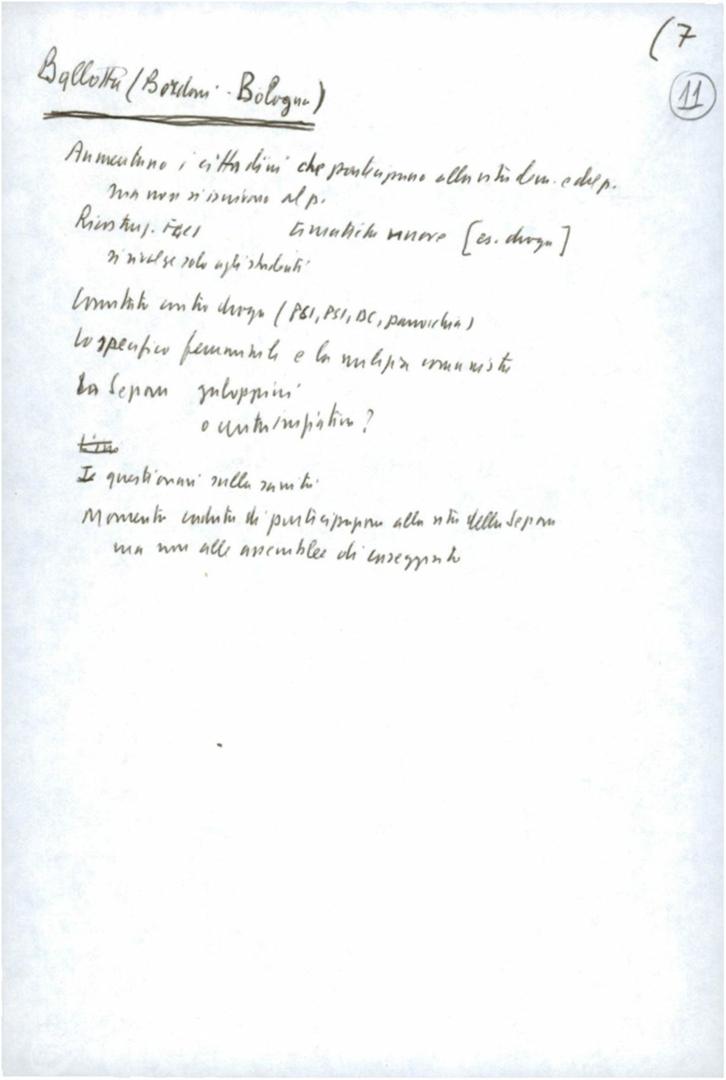 (7
11
Ballotta (Bordoni - Bologna)
Aumentano i cittadini che partecipano alla vita dem. e del p.
ma non si iscrivono al p.
tematiche nuove [es. droga]
si rivolge solo agli studenti
Comitato contro droga (PCI, PSI, DC, parrocchia)
Lo specifico femminile e la milizia comunista
La Sezione galoppini
o centro iniziativa?
I questionari sulla sanità
Momento caduta di partecipazione alla vita della Sezione
ma non alle assemblee di caseggiato